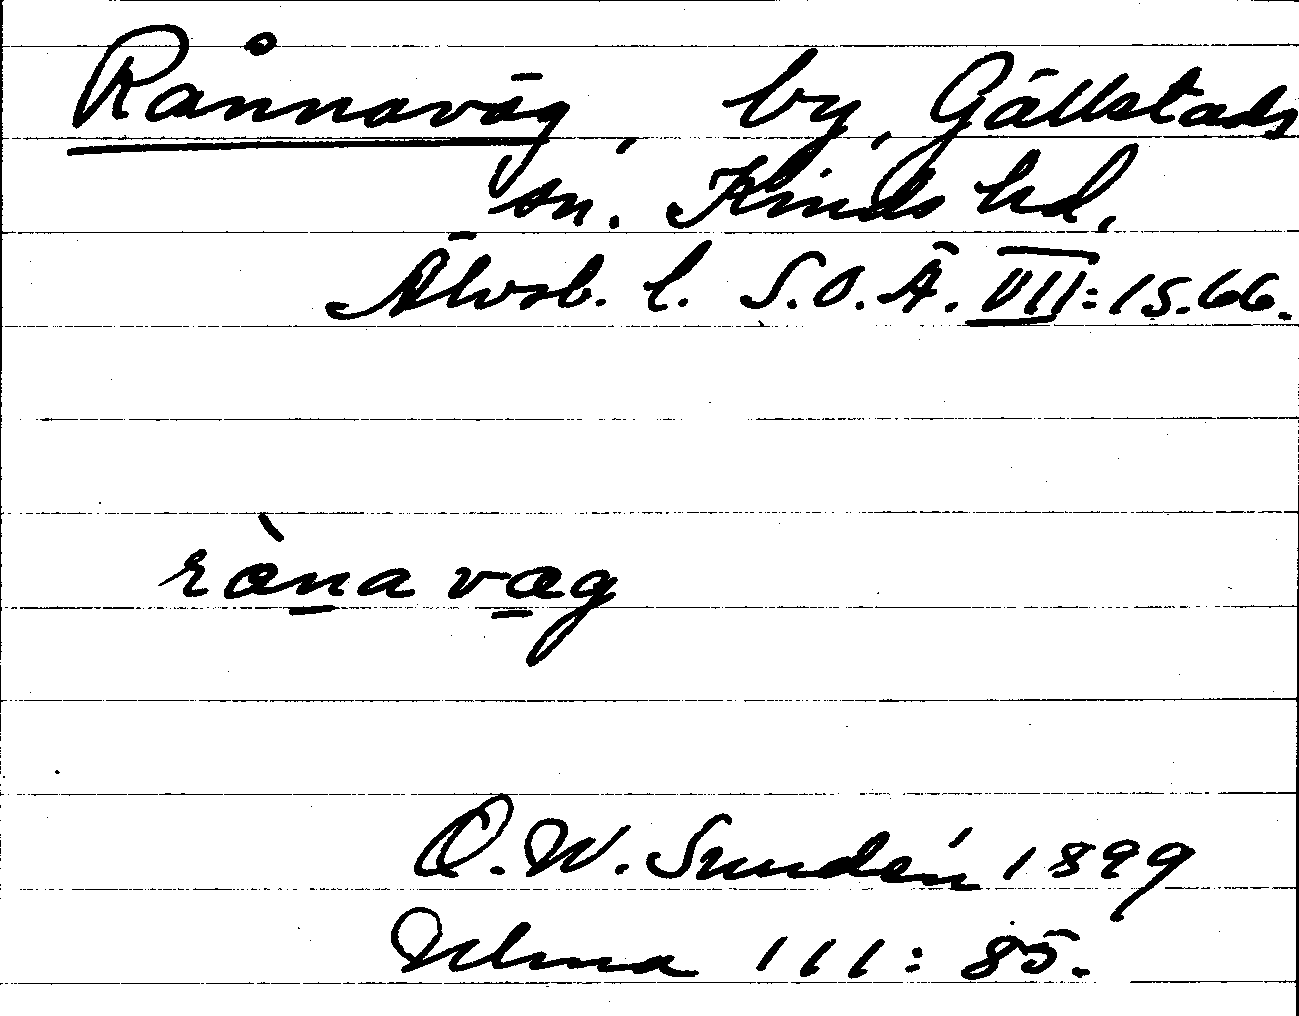 Rånnaväg, by, Gällstads
sn. Kinds hd,
Älvsb. l. S.O.Ä. VII:1 S.66.
ràna væg
D.W. Sundén 1899
Ulma 111:85.